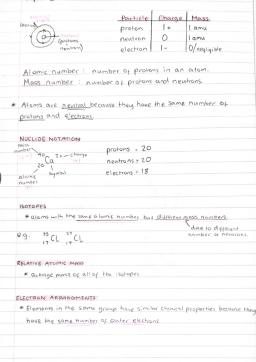 Particle Charge Mass
proton 1+ 1 amu
neutron 0 1 amu
electron 1- 0/negligible
(protons
neutrons)
Atomic number : number of protons in an atom.
Mass number : number of protons and neutrons
* Atoms are neutral because they have the same number of
protons and electrons.
NUCLIDE NOTATION
mass
number
40 Ca 2+ charge
20
symbol
atomic
number
protons = 20
neutrons = 20
electrons = 18
ISOTOPES
* atoms with the same atomic number but different mass numbers
due to different
number of neutrons.
eg. 35 Cl 37 Cl
17 17
RELATIVE ATOMIC MASS
* average mass of all of the isotopes
ELECTRON ARRANGEMENTS
* Elements in the same group have similar chemical properties because they
have the same number of outer electrons